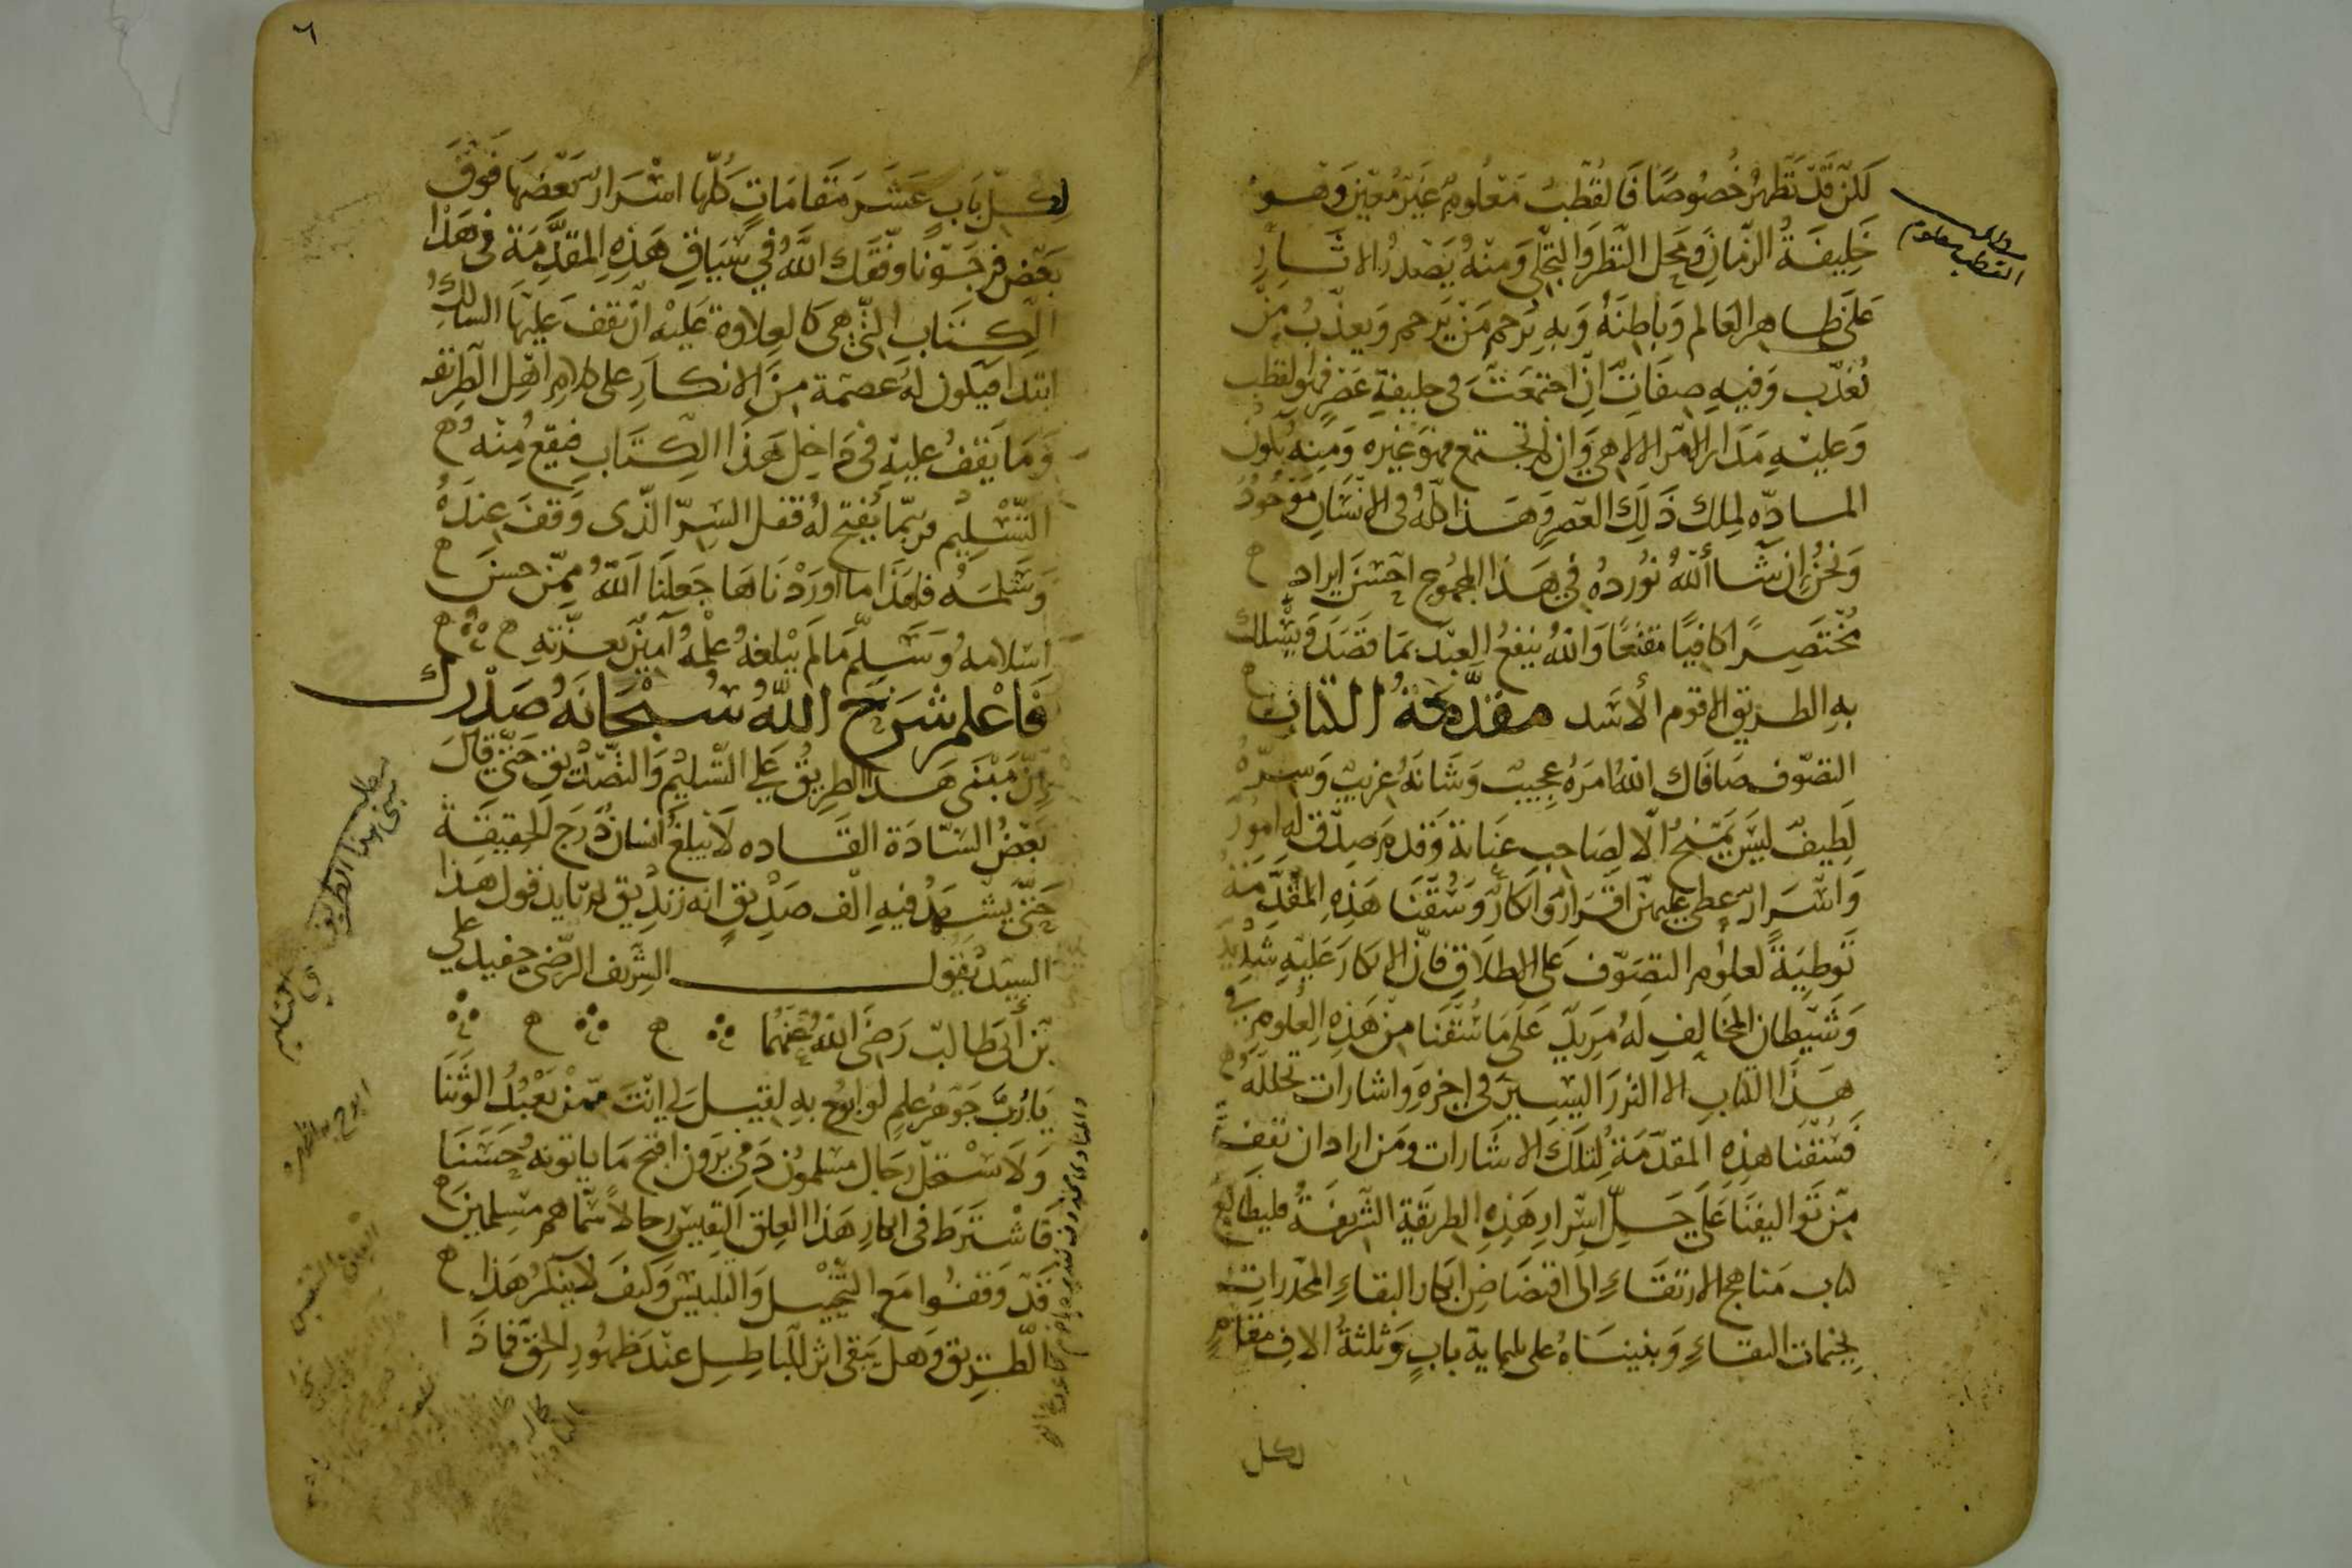 لكن قد تظهر خصوصا فالقطب معلوم غير معين وهو
خليفة الزمان ومحل النظر والتجلي ومنه يصدر الاثار
على ظاهر العالم وباطنه وبه يرحم من يرحم ويعذب من
يعذب وفيه صفات ان اجتمعت في خليفة عصر فهو القطب
وعليه مدار الامر الالاهي وان لم تجتمع فهو غيره ومنه يكون
المادة لملك ذلك العصر وهذا كله في الانسان موجود
ونحن ان شا الله نورده في هذا المجموع احسن ايراد
مختصرا كافيا مقنعا والله ينفع العبد بما قصد ويسلك
به الطريق الاقوم الأسد مقدمة الكتاب
التصوف صافاك الله امره عجيب وشانه غريب وسره
لطيف ليس يمنح الا لصاحب عناية وقدم صدق له امور
واسرار غطى عليهن اقرار وانكار وسقنا هذه المقدمة
توطية لعلوم التصوف على الاطلاق فان الانكار عليه شديد
وشيطان المخالف له مريد على ما سقنا من هذه العلوم في
هذا الكتاب الا النزر اليسير في اخره واشارات تخلله
فسقنا هذه المقدمة لتلك الاشارات ومن اراد ان يقف
من تواليفنا على جل اسرار هذه الطريقة الشريفة فليطالع
كتاب مناهج الارتقاء الى افتضاض ابكار البقاء المخدرات
بخيمات اللقاء وبنيناه على ثلماية باب وثلثة الاف مقام
لكل
القطب معلوم
٦
لكل باب عشر مقامات كلها اسرار بعضها فوق
بعض فرجونا وفقك الله في سياق هذه المقدمة في هذا
الكتاب التي هي كالعلاوة عليه ان يقف عليها السالك
ابتدا فيكون له عصمة من الانكار على كلام اهل الطريقة
وما يقف عليه في داخل هذا الكتاب فيقع منه
التسليم وربما يفتح له قفل السر الذي وقف عنده
وسلمه فلهذا ما اوردناها جعلنا الله ممن حسن
اسلامه وسلم ما لم يبلغه علمه آمين بعزته
فاعلم شرح الله سبحانه صدرك
ان مبنى هذا الطريق على التسليم والتصديق حتى قال
بعض السادة القاده لا يبلغ انسان درج الحقيقة
حتى يشهد فيه الف صديق انه زنديق يريد قول هذا
السيد يقول الشريف الرضي حفيد علي
بن أبي طالب رضي الله عنهما
يا رب جوهر علم لو ابوح به لقيل لي انت ممن يعبد الوثنا
ولاستحل رجال مسلمون دمي يرون اقبح ما ياتونه حسنا
فاشترط في انكار هذا العلق النفيس رجالا سماهم مسلمين
قد وقفوا مع التخييل والتلبيس وكيف لا ينكر هذا
الطريق وهل يبقى اثر للباطل عند ظهور الحق فماذا
مبنى هذا الطريق